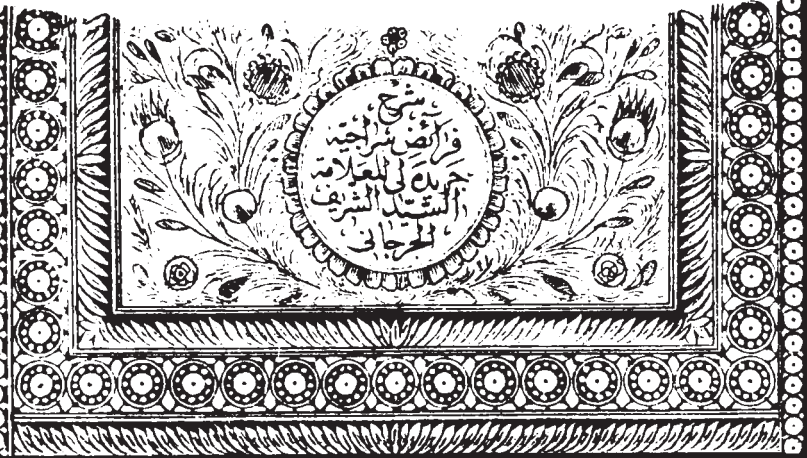 شرح
فرائض سراجيه
جريده لى للعلامه
السيد الشريف
الجرجانى